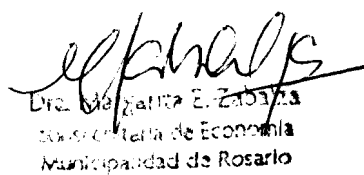 Dra. Margarita E. Zabalza
Subsecretaria de Economía
Municipalidad de Rosario